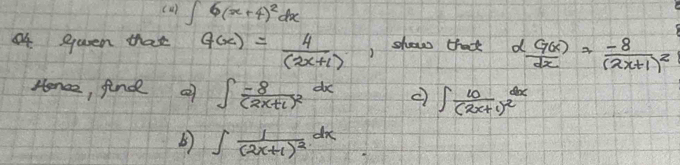 (ii) ∫ 6(x+4)² dx
Q4 Given that G(x) = 4/(2x+1), show that d G(x)/dx = -8/(2x+1)²
Hence, find a) ∫ -8/(2x+1)² dx c) ∫ 10/(2x+1)² dx
b) ∫ 1/(2x+1)² dx.